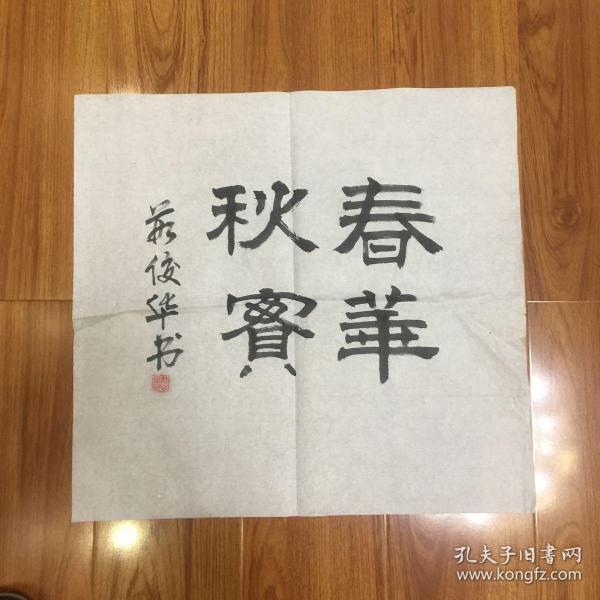 春華
秋實
俊华书
孔夫子旧書网
www.kongfz.com